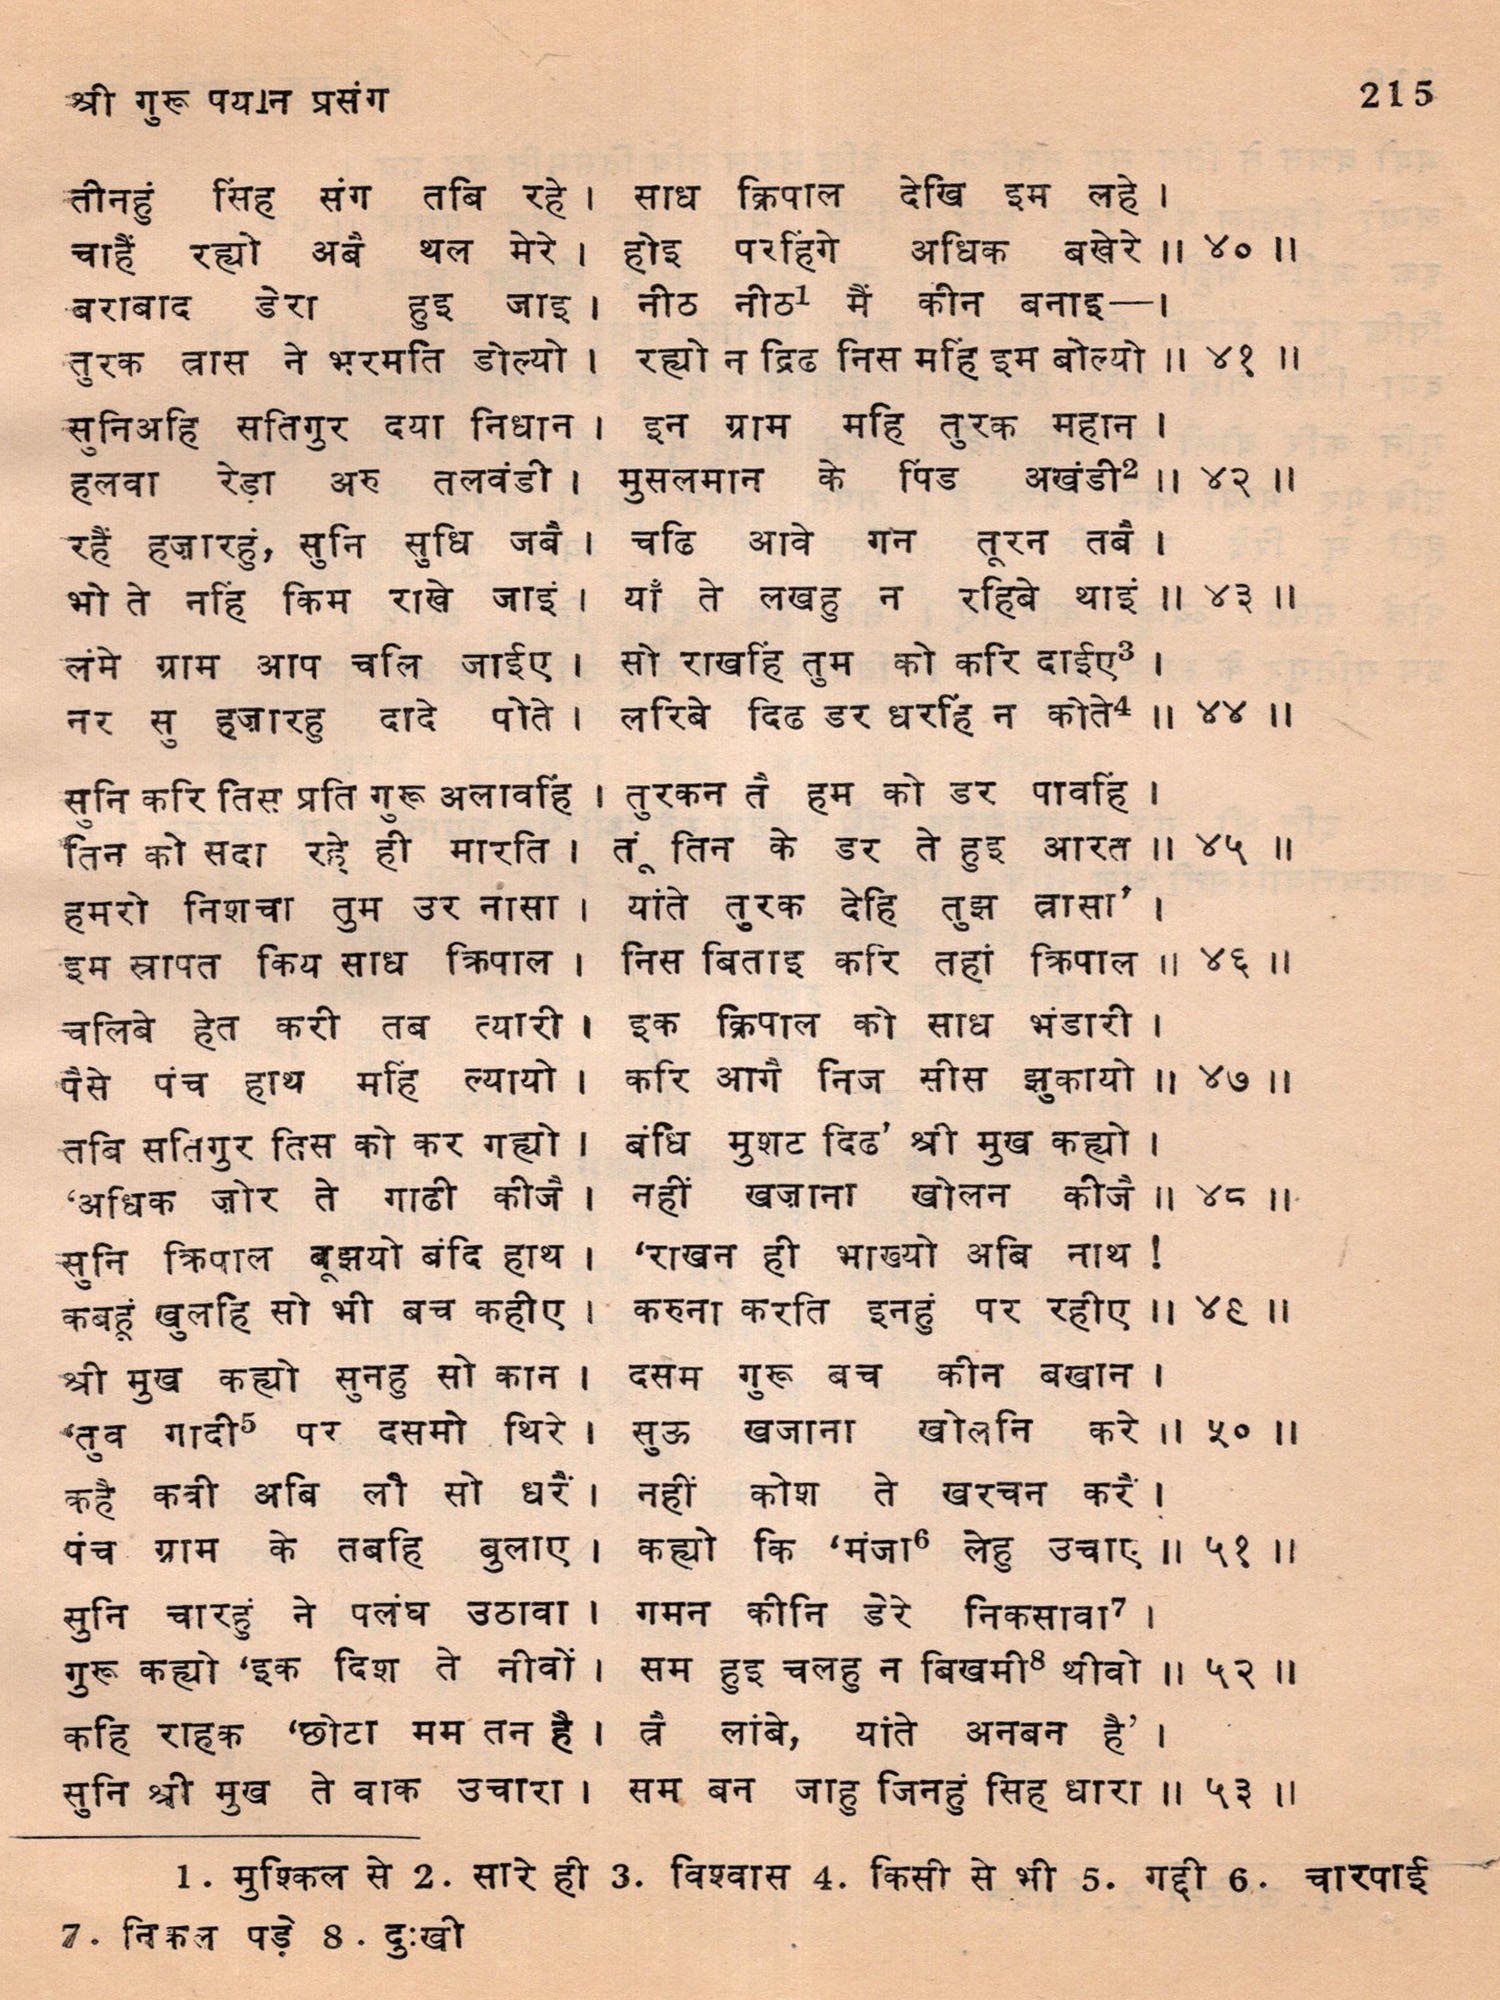 श्री गुरू पयान प्रसंग 215
तीनहुं सिंह संग तबि रहे । साध क्रिपाल देखि इम लहे ।
चाहैं रह्यो अबै थल मेरे । होइ परहिंगे अधिक बखेरे ॥ ४० ॥
बराबाद डेरा हुइ जाइ । नीठ नीठ¹ मैं कीन बनाइ—।
तुरक त्रास ने भरमति डोल्यो । रह्यो न द्रिढ निस महिं इम बोल्यो ॥ ४१ ॥
सुनिअहि सतिगुर दया निधान । इन ग्राम महि तुरक महान ।
हलवा रेड़ा अरु तलवंडी । मुसलमान के पिंड अखंडी² ॥ ४२ ॥
रहैं हज़ारहुं, सुनि सुधि जबै । चढि आवे गन तूरन तबै ।
भो ते नहिं किम राखे जाइं । याँ ते लखहु न रहिबे थाइं ॥ ४३ ॥
लंमे ग्राम आप चलि जाईए । सो राखहिं तुम को करि दाईए³ ।
नर सु हज़ारहु दादे पोते । लरिबे दिढ डर धरहिं न कोते⁴ ॥ ४४ ॥
सुनि करि तिस प्रति गुरू अलावहिं । तुरकन तै हम को डर पावहिं ।
तिन को सदा रहे ही मारति । तूं तिन के डर ते हुइ आरत ॥ ४५ ॥
हमरो निशचा तुम उर नासा । यांते तुरक देहि तुझ त्रासा’ ।
इम स्रापत किय साध क्रिपाल । निस बिताइ करि तहां क्रिपाल ॥ ४६ ॥
चलिबे हेत करी तब त्यारी । इक क्रिपाल को साध भंडारी ।
पैसे पंच हाथ महिं ल्यायो । करि आगै निज सीस झुकायो ॥ ४७ ॥
तबि सतिगुर तिस को कर गह्यो । बंधि मुशट दिढ’ श्री मुख कह्यो ।
‘अधिक ज़ोर ते गाढी कीजै । नहीं खज़ाना खोलन कीजै ॥ ४८ ॥
सुनि क्रिपाल बूझयो बंदि हाथ । ‘राखन ही भाख्यो अबि नाथ !
कबहूं खुलहि सो भी बच कहीए । करुना करति इनहुं पर रहीए ॥ ४९ ॥
श्री मुख कह्यो सुनहु सो कान । दसम गुरू बच कीन बखान ।
‘तुव गादी⁵ पर दसमो थिरे । सुऊ खजाना खोलनि करे ॥ ५० ॥
कहै कत्री अबि लौ सो धरैं । नहीं कोश ते खरचन करैं ।
पंच ग्राम के तबहि बुलाए । कह्यो कि ‘मंजा⁶ लेहु उचाए ॥ ५१ ॥
सुनि चारहुं ने पलंघ उठावा । गमन कीनि डेरे निकसावा⁷ ।
गुरू कह्यो ‘इक दिश ते नीवों । सम हुइ चलहु न बिखमी⁸ थीवो ॥ ५२ ॥
कहि राहक ‘छोटा मम तन है । त्रै लांबे, यांते अनबन है’ ।
सुनि श्री मुख ते वाक उचारा । सम बन जाहु जिनहुं सिह धारा ॥ ५३ ॥
1. मुश्किल से 2. सारे ही 3. विश्वास 4. किसी से भी 5. गद्दी 6. चारपाई
7. निकल पड़े 8. दुःखी